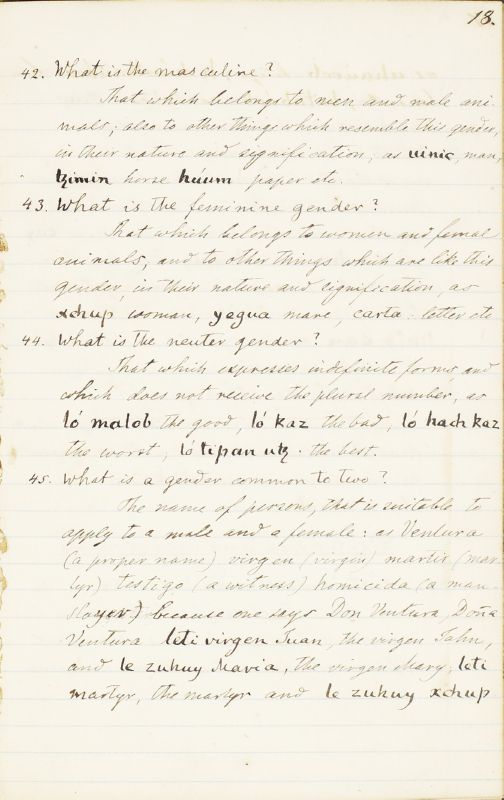 18.
42. What is the masculine?
That which belongs to men and male ani-
mals; also to other things which resemble this gender,
in their nature and signification, as uinic, man,
tzimin horse húum paper etc.
43. What is the feminine gender?
That which belongs to women and femal
animals, and to other things which are like this
gender, in their nature and signification, as
xchup woman, yegua mare, carta letter etc
44. What is the neuter gender?
That which expresses indefinite forms, and
which does not receive the plural number, as
ló malob the good, ló kaz the bad, ló hach kaz
the worst, ló tipan utz. the best.
45. What is a gender common to two?
The name of persons, that is suitable to
apply to a male and a female: as Ventura
(a proper name) virgen (virgin) martir (mar-
tyr) testigo (a witness) homicida (a man
slayer) because one says Don Ventura, Doña
Ventura leti virgen Juan, the virgen John,
and le zuhuy Maria, the virgen Mary, leti
martyr, the martyr and le zuhuy xchup